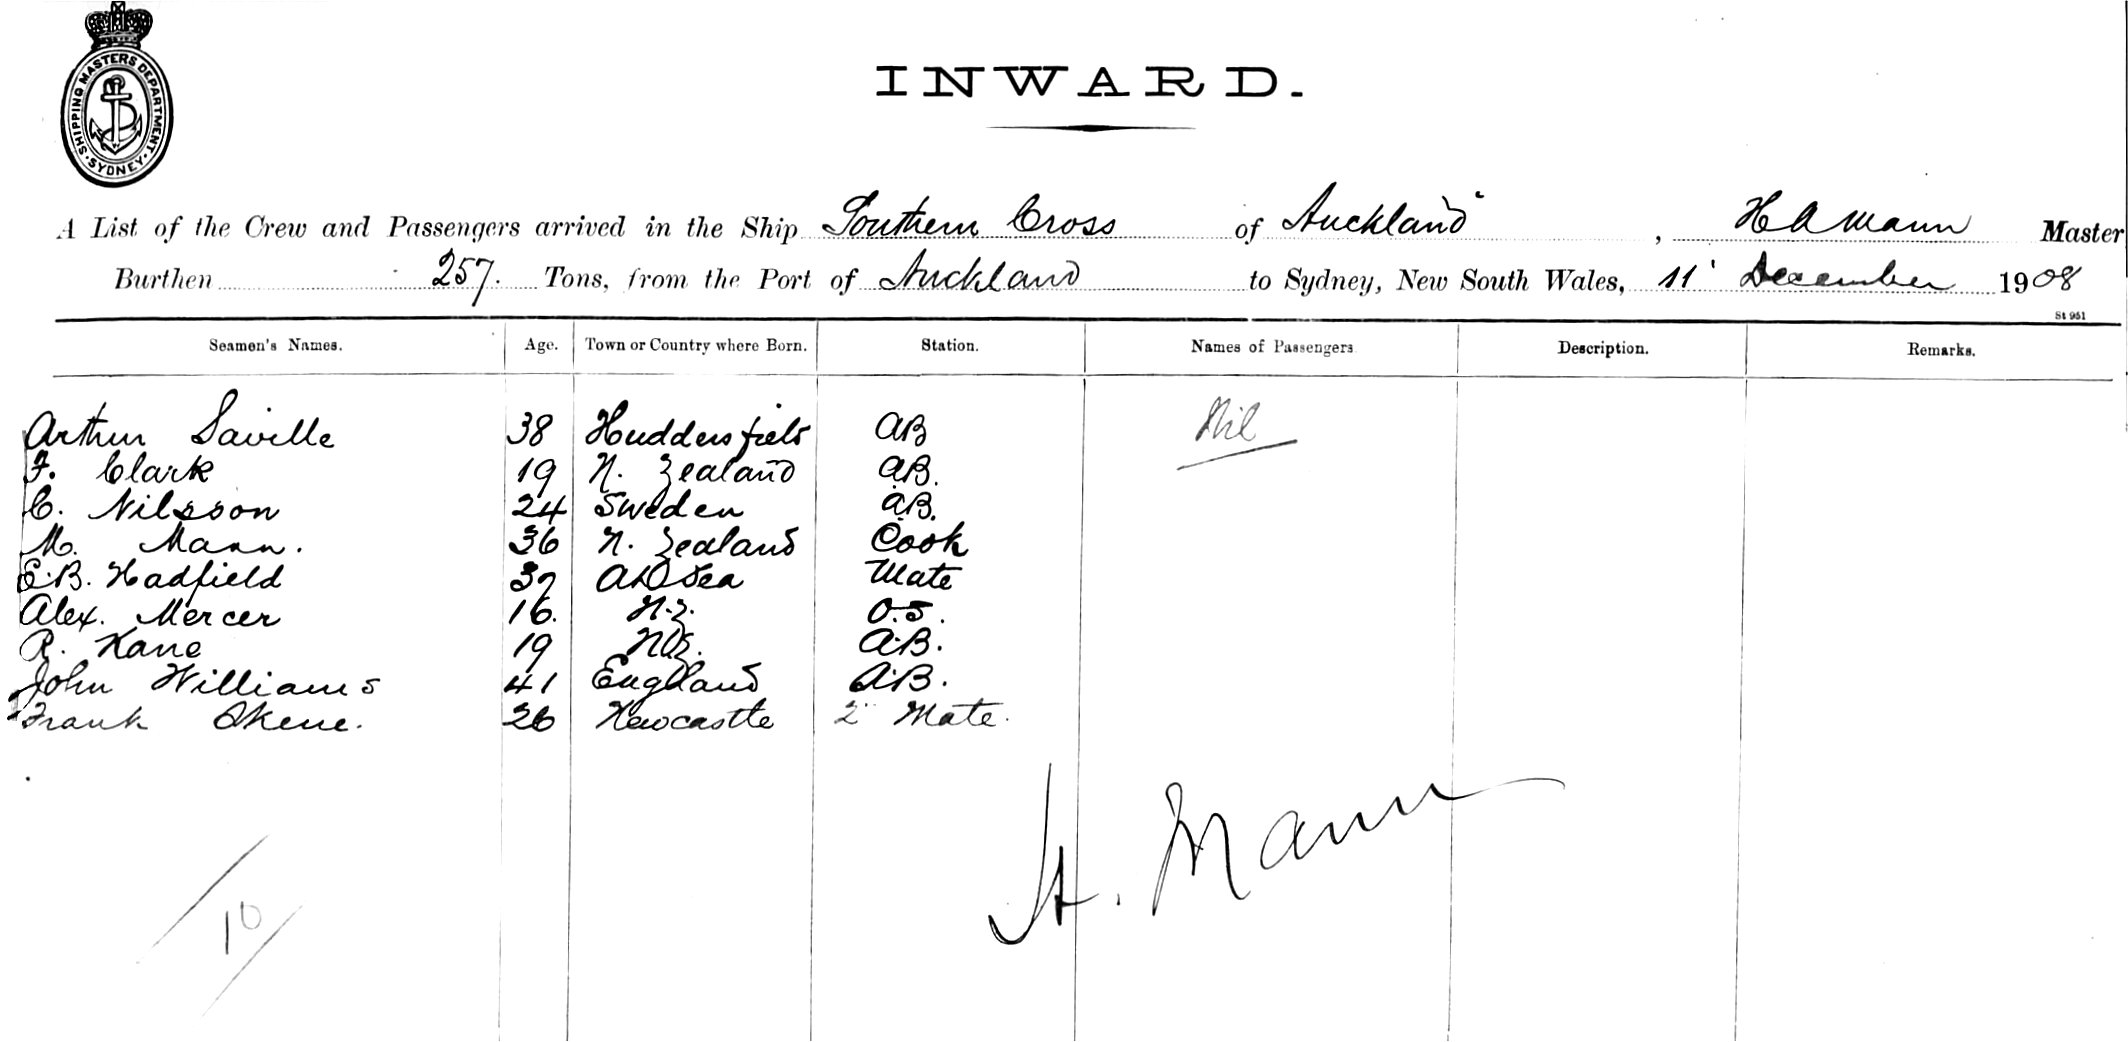 SHIPPING MASTERS DEPARTMENT. SYDNEY.
INWARD.
A List of the Crew and Passengers arrived in the Ship Southern Cross of Auckland, H A Mann Master
Burthen 257. Tons, from the Port of Auckland to Sydney, New South Wales, 11 December 1908
St 951
Seamen's Names. Age. Town or Country where Born. Station. Names of Passengers Description. Remarks.
Arthur Saville 38 Huddersfield AB Nil
F. Clark 19 N. Zealand AB.
C. Nilsson 24 Sweden AB.
M. Mann. 36 N. Zealand Cook
E.B. Hadfield 37 At Sea Mate
Alex. Mercer 16. N.Z. O.S.
R. Kane 19 N.Z. A.B.
John Williams 41 England A.B.
Frank Skene. 26 Newcastle 2" Mate.
H. Mann
10